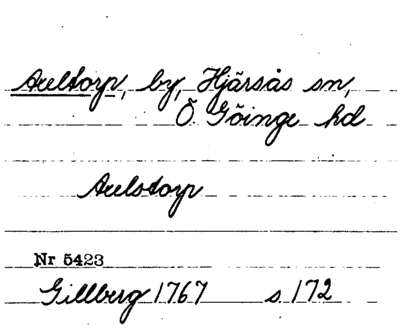 Axeltorp, by, Hjärsås sn,
Ö Göinge hd
Axelstorp
Nr 5423
Gillberg 1767 s 172